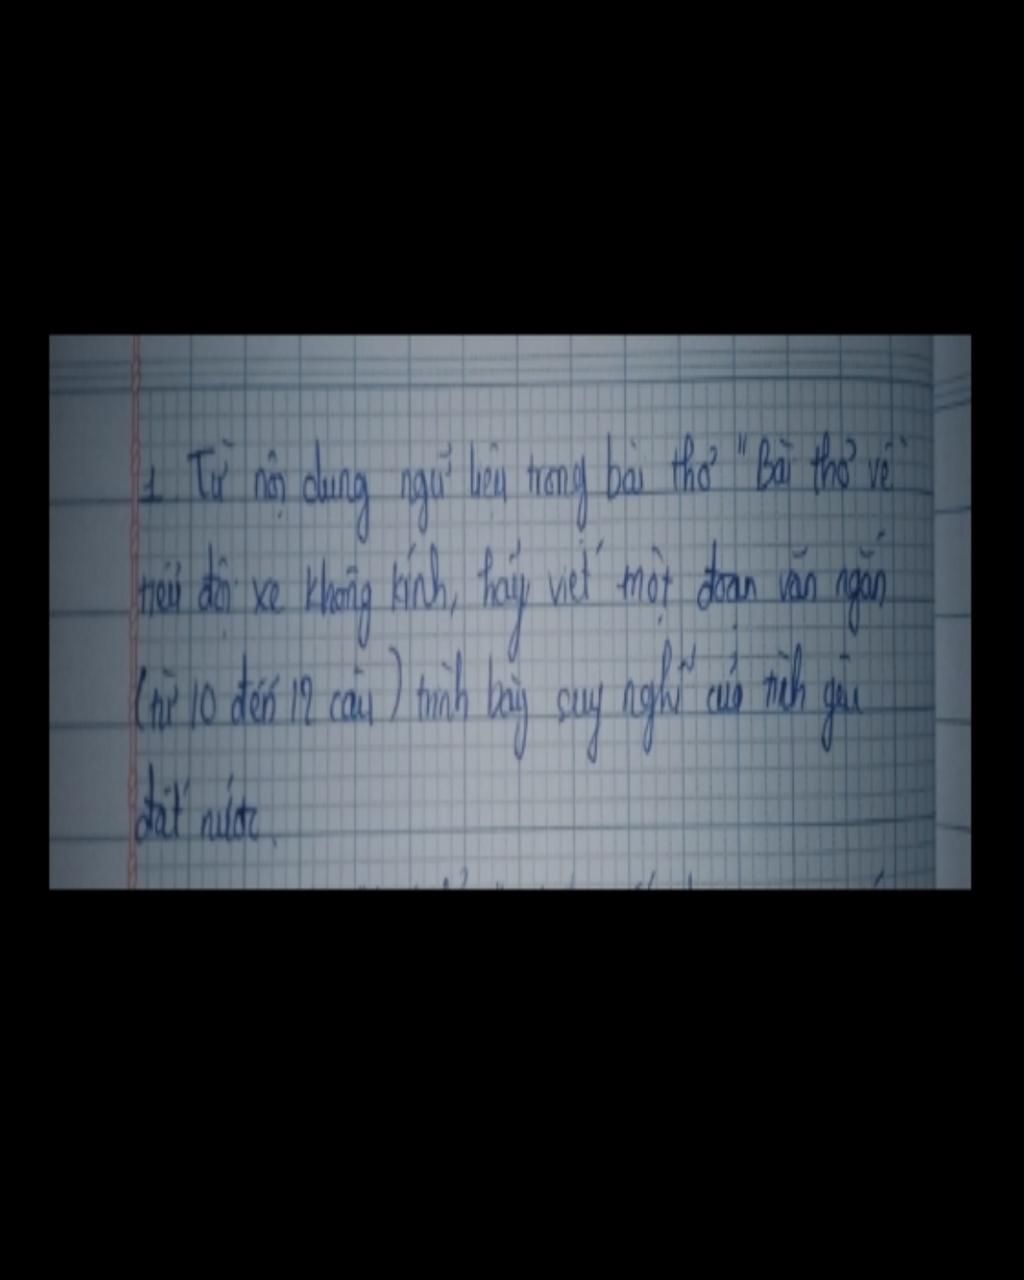 1. Từ nội dung ngữ liệu trong bài thơ "Bài thơ về
tiểu đội xe không kính, hãy viết một đoạn văn ngắn
(từ 10 đến 12 câu) trình bày suy nghĩ của tình yêu
đất nước.